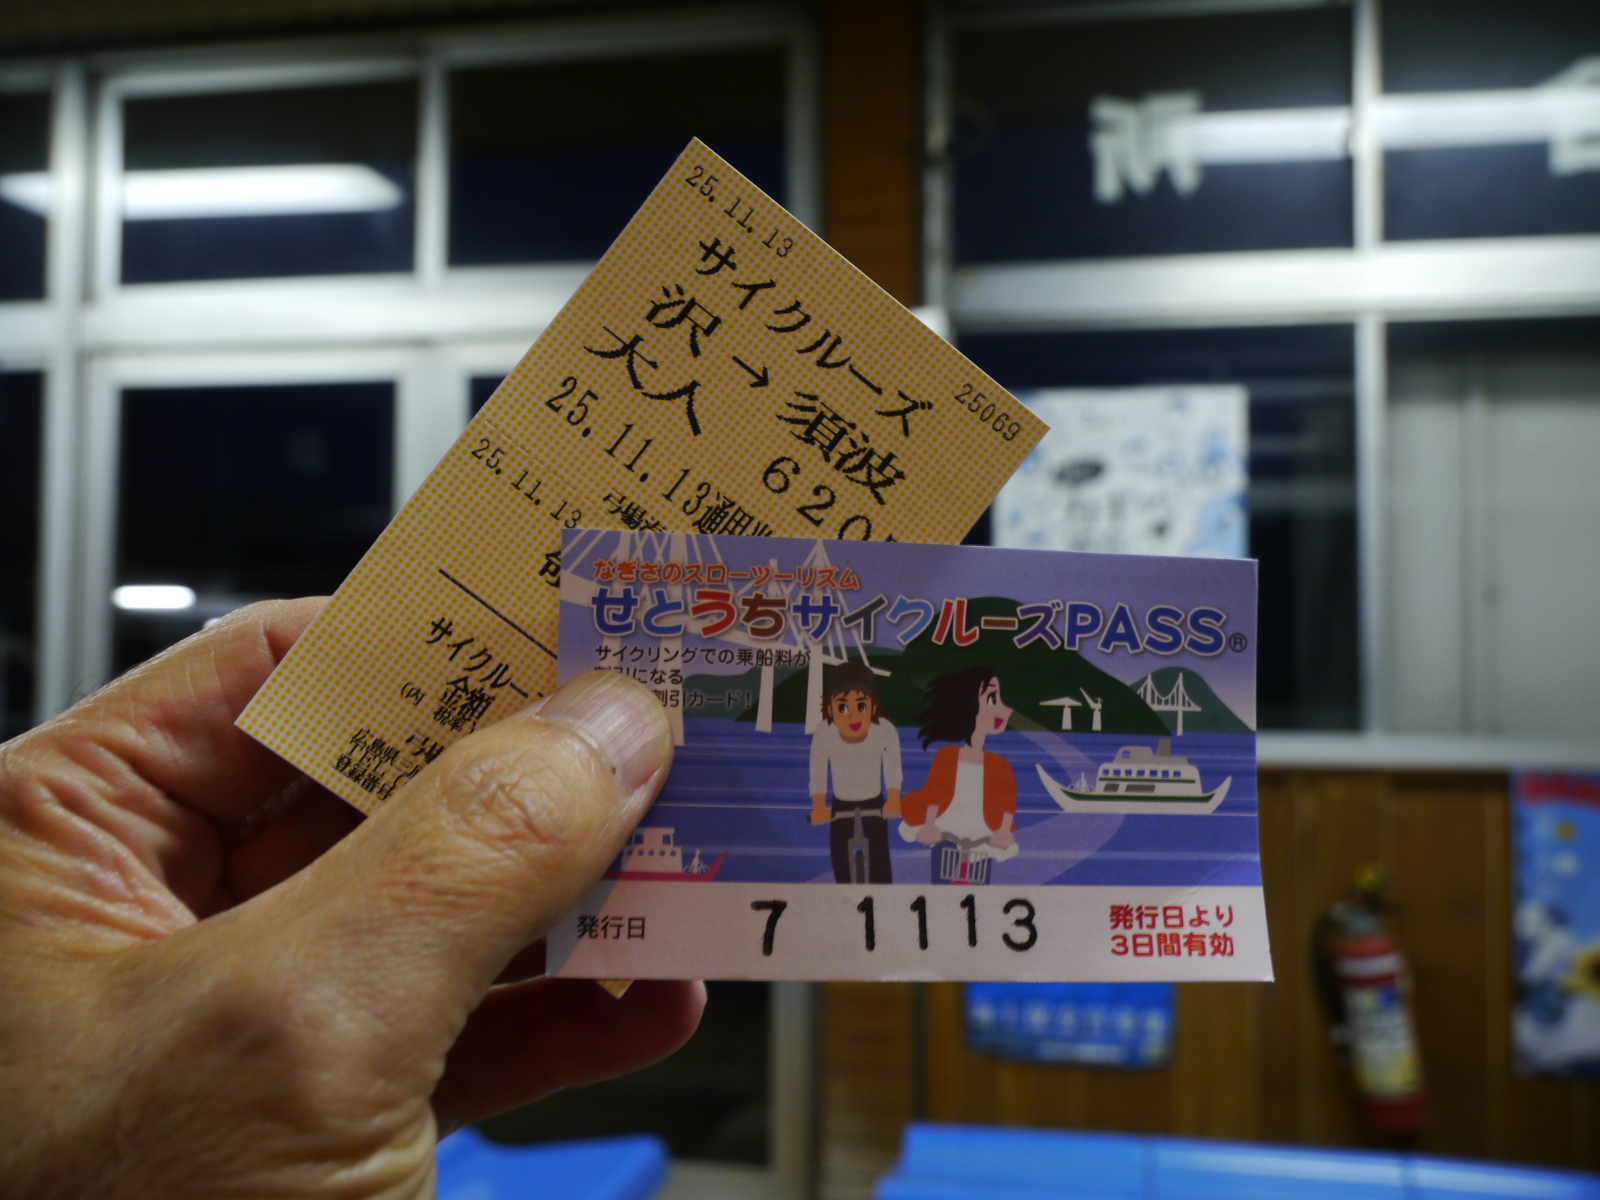 25.11.13
サイクルーズ
25069
沢→須波
大人 620
25.11.13通用
25.11.13
サイクルー
金額
(内
なぎさのスローツーリズム
せとうちサイクルーズPASS®
サイクリングでの乗船料が
割引になる
割引カード!
発行日 7 1113
発行日より
3日間有効